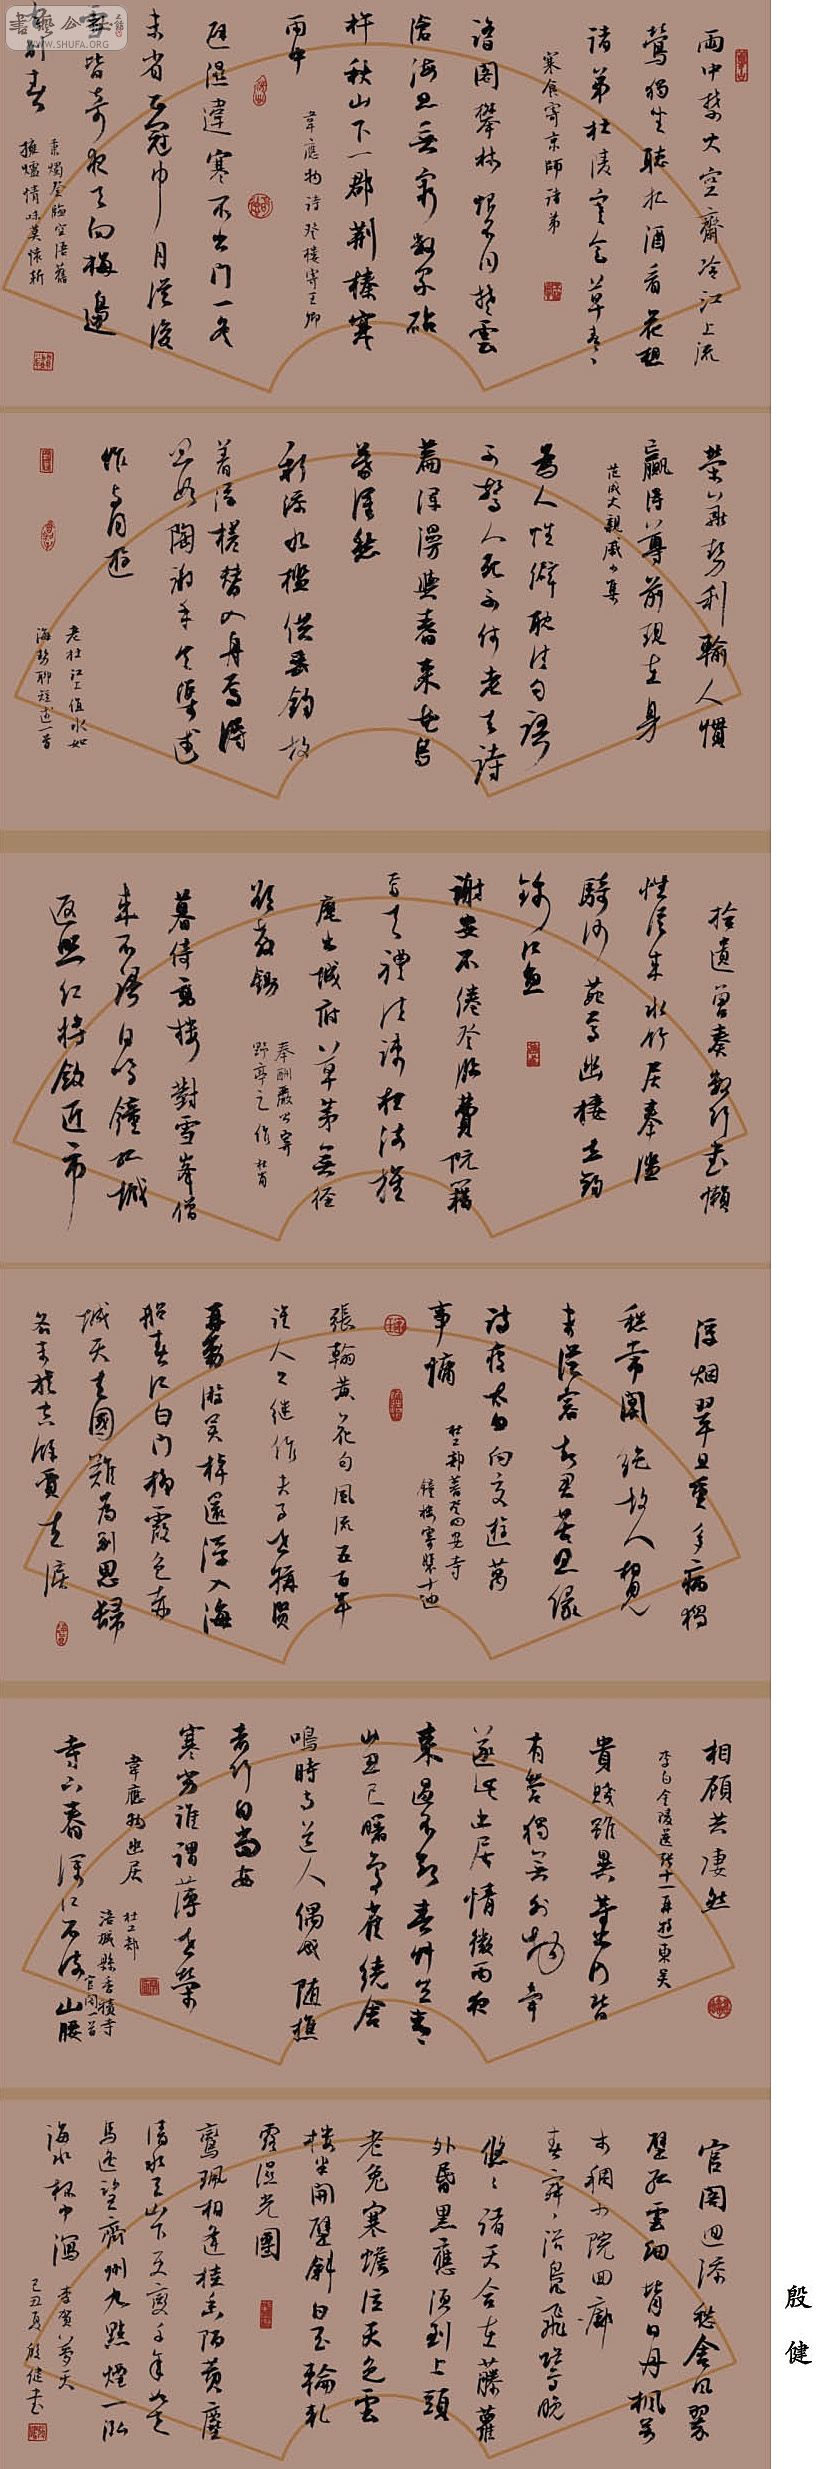 書藝公社
WWW.SHUFA.ORG
雨中禁火空齋冷江上流
鶯獨坐聽把酒看花想
諸弟杜陵寒食草青々
寒食寄京師諸弟
踏閣攀林恨不同楚雲
滄海思無窮數家砧
杵秋山下一郡荊榛寒
雨中
韋應物詩登樓寄王卿
逕濕違寒不出門一冬
未省正冠巾月從後
皆奇夜天向梅邊
有別春
秉燭登臨空語舊
擁爐情味莫懷新
榮華勢利輸人慣
贏得尊前現在身
范成大親戚小集
為人性僻耽佳句語
不驚人死不休老去詩
篇渾漫與春來花鳥
莫深愁
新添水檻供垂釣故
著浮槎替入舟焉得
思如陶謝手令渠述
作與同遊
老杜江上值水如
海勢聊短述一首
拾遺曾奏數行書懶
性從來水竹居奉濫
騎沙苑馬幽棲真釣
錦江魚
謝安不倦登臨費阮籍
焉知禮法疎枉沐旌
麾出城府草茅無徑
欲教鋤
奉酬嚴公寄
野亭之作 杜甫
暮倚高樓對雪峰僧
來不語自鳴鐘孤城
返照紅將斂近市
浮烟翠且重多病獨
愁常闃絕故人相見
未從容知君苦思緣
詩瘦太向交遊萬
事慵
杜工部暮登四安寺
鐘樓寄裴十迪
張翰黃花句風流五百年
誰人今繼作夫子世稱賢
再動遊吳棹還浮入海
船春江白門柳霞色赤
城天去國難為別思歸
各未旋空餘賈生淚
相顧共淒然
李白金陵送張十一再遊東吳
貴賤雖異等出門皆
有營獨無外物牽
遂此幽居情微雨夜
來過不知春草生青
山忽已曙鳥雀繞舍
鳴時與道人偶或隨樵
者行自當安
蹇劣誰謂薄世榮
韋應物幽居
杜工部
涪城縣香積寺
官閣一首
寺下春深江不流山腰
官閣迥添愁含風翠
壁孤雲細背日丹楓萬
木稠小院回廊
春寂々浴鳧飛鷺晚
悠々諸天合在藤蘿
外昏黑應須到上頭
老兔寒蟾泣天色雲
樓半開壁斜白玉輪軋
露濕光團
鸞珮相逢桂香陌黃塵
清水三山下更變千年如走
馬遙望齊州九點煙一泓
海水杯中瀉
李賀夢天
己丑夏殷健書
殷健